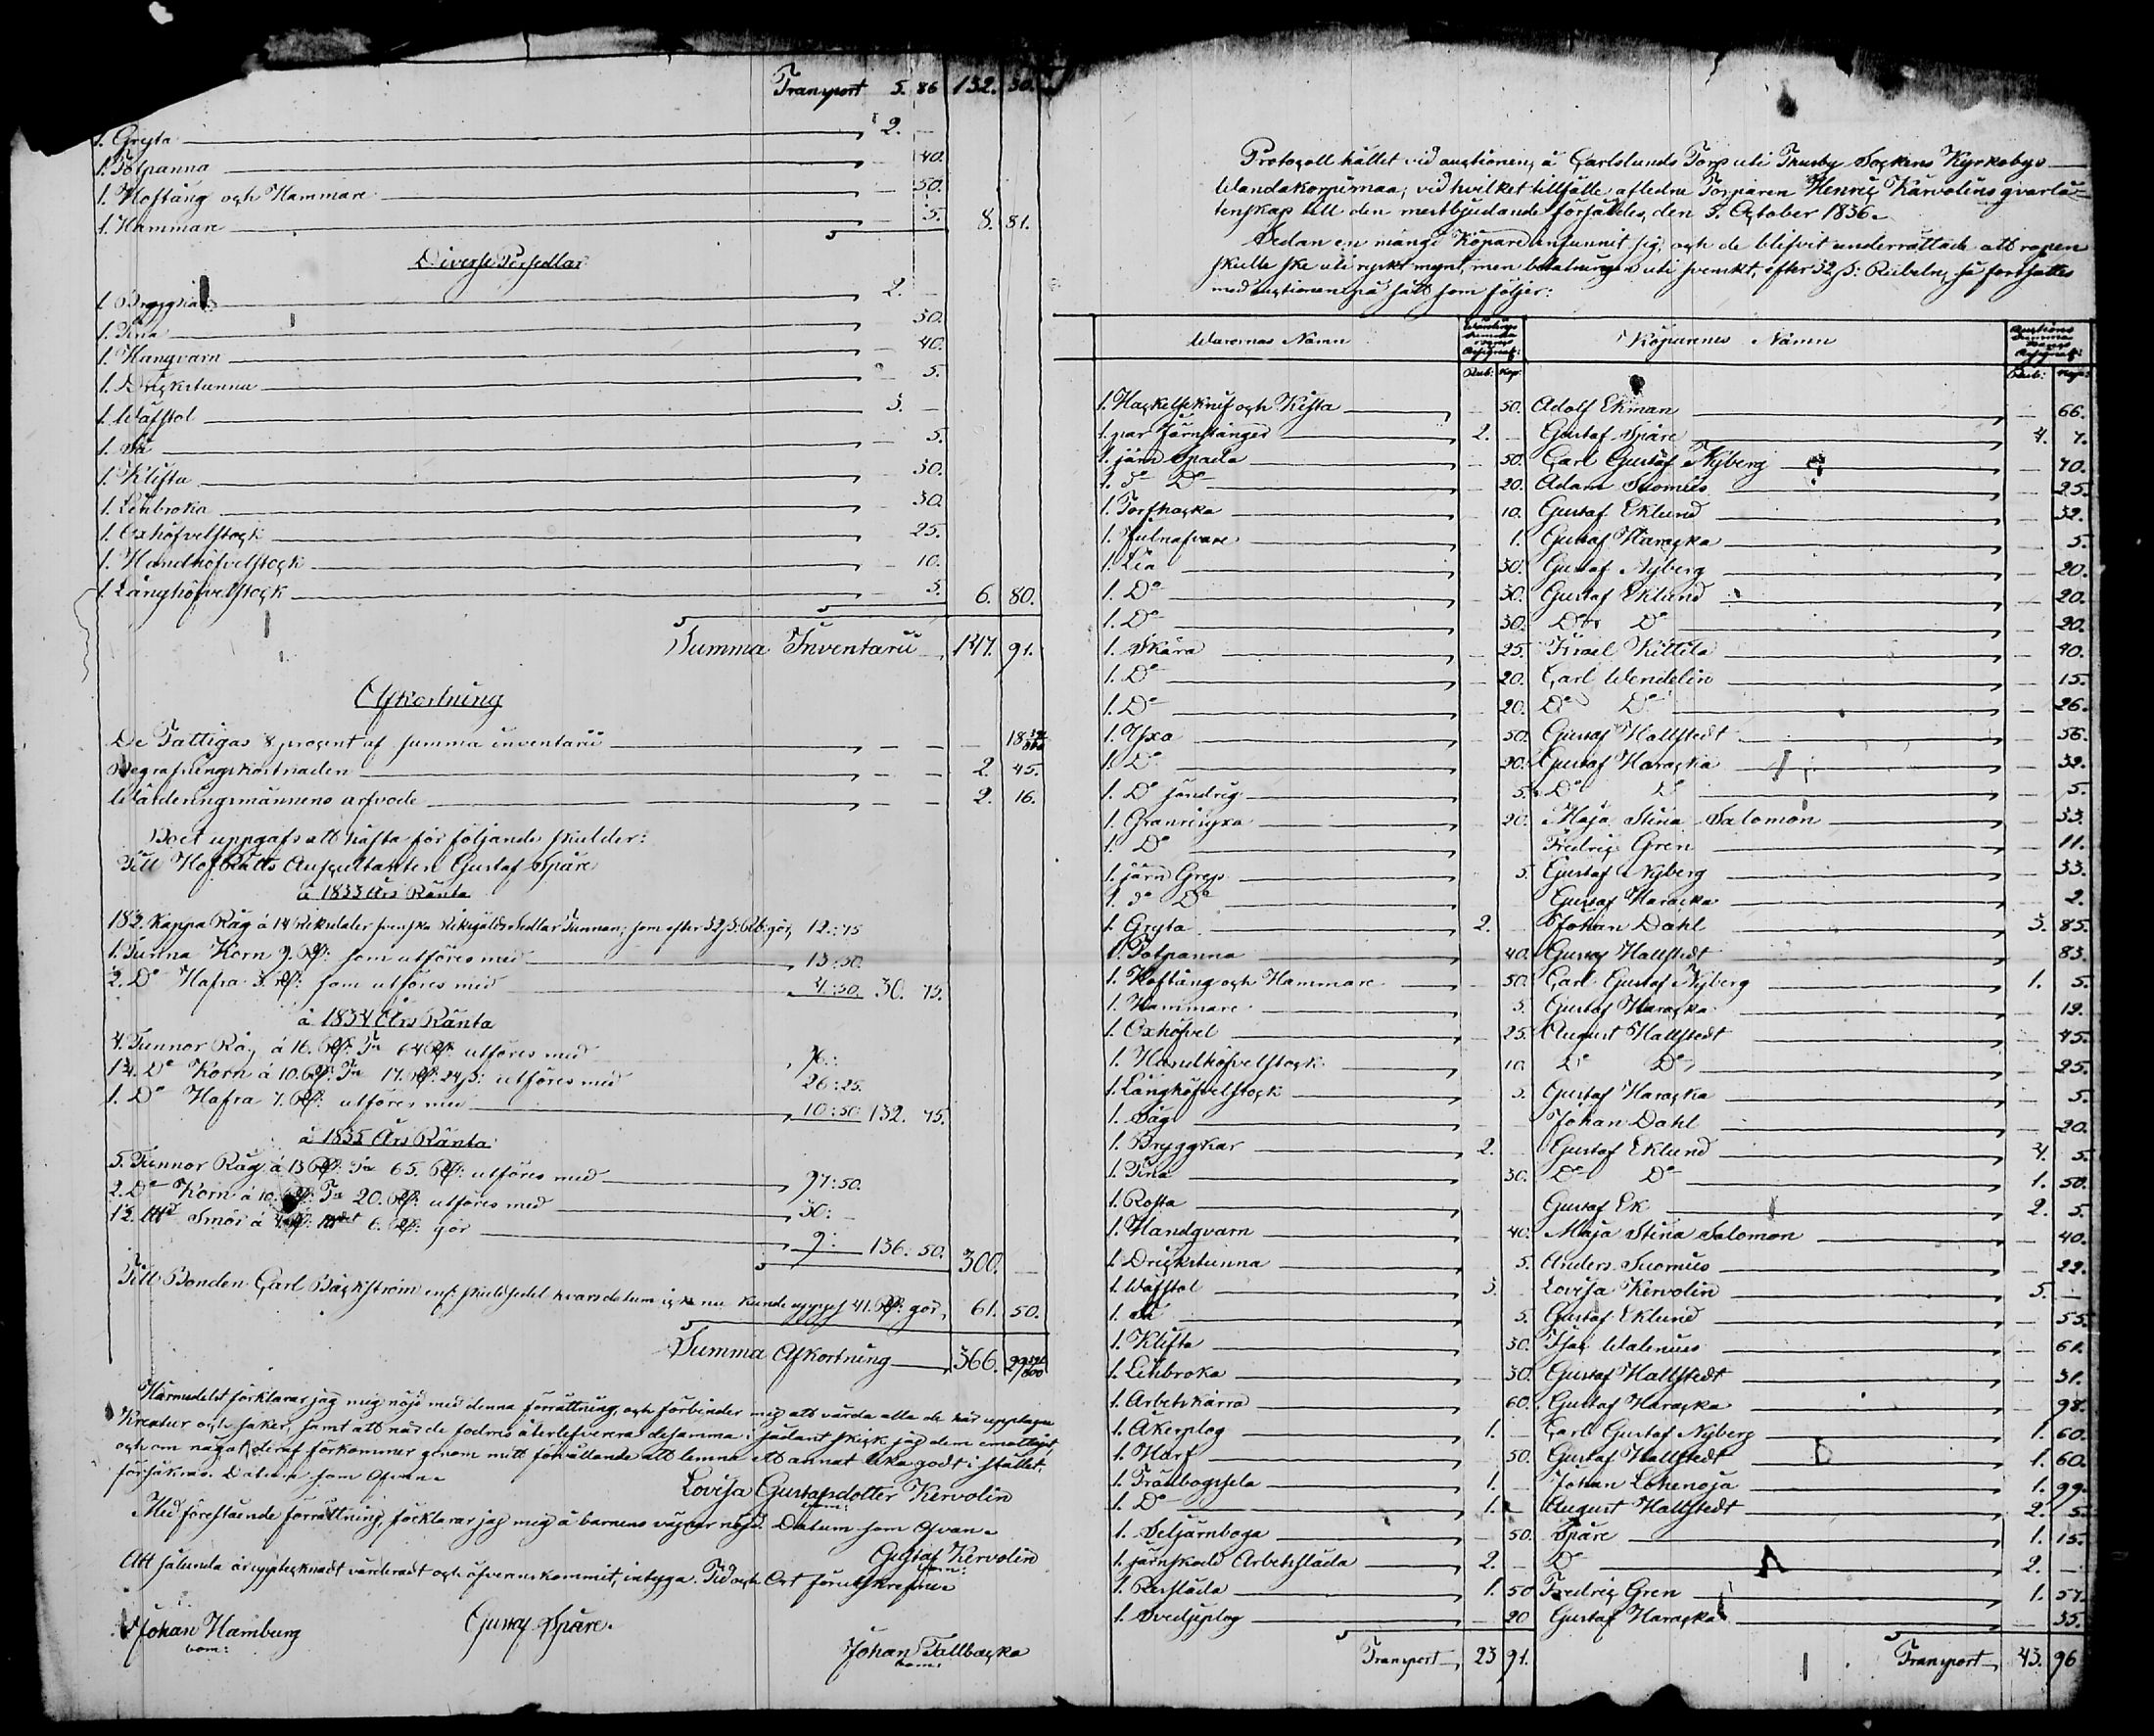 Transport 5. 86 132. 30.
1. Gryta 2. —
1. Totpanna — 40.
1. Hoftång och Hammare — 50.
1. Hammare — 5. 8. 81.
Diverse Persedlar
1 Bryggkar 2. —
1. Tina — 30.
1. Handqvarn — 40.
1. Drickstunna — 5.
1 Wäfstol 3. —
1. Så — 5.
1. Klifta — 30.
1. Linbroka — 30.
1. Oxhöfvelstock — 25.
1. Handhöfvelstock — 10.
1 Långhöfvelstock — 5. 6. 80.
Summa Inventarii 147. 91.
Afkortning
De Fattigas 8 procent af summa inventarii — — — 18
Begrafningskostnaden — — 2. 45.
Wärderingsmännens arfvode — — 2. 16.
Boet uppgafs att häfta för följande skulder:
Till HofRätts Auscultanten Gustaf Spåre
å 1833 Års Ränta
182. Kappa Råg á 14 Riksdaler svenska Riksgälds Sedlar Tunnan, som efter 32 ß: Rb: gör, 12.:75
1. Tunna Korn 9. Rß: som utföres med 13:50.
2. Do Hafra 3. Rß: som utföres med 4:50. 30. 75.
å 1834 Års Ränta
4. Tunnor Råg á 16. Rß: Tn 64 Rß: utföres med 96.:
1 3/4. Do Korn á 10. Rß: Tn 17. Rß: 24 ß: utföres med 26:25.
1. Do Hafra 7. Rß: utföres med 10:50: 132. 75.
å 1835 Års Ränta
5. Tunnor Råg á 13 Rß: Tn 65. Rß: utföres med 97:50.
2. Do Korn á 10. Rß: Tn 20. Rß: utföres med 30: —
12. Smör á 6. Rß: gör 9: — 136. 50. 300. —
Till Bonden Carl Bäckström enl: skuldsedel hvars datum icke nu kunde uppges 41. Rß: gör, 61. 50.
Summa Afkortning 366. 29
Härmedelst förklarar jag mig nöjd med denna förrättning, och förbinder mig att vårda alla de här upptagne
Kreatur och saker, samt att när de fodras återlefverera desamma i sådant skick jag dem emottagit,
och om något deraf förkommer genom mitt förvållande att lemna ett annat lika godt i stället,
försäkras. Datum som Ofvan.
Lovisa Gustafsdotter Kervolin
bom:
Med förestående förrättning, förklarar jag mig å barnens vägnar nöjd. Datum som Ofvan.
Gustaf Kervolin
bom:
Att sålunda är upptecknadt värderadt och öfverenskommit, intyga. Tid och Ort förutskrefne.
Johan Hamburg
bom:
Gustaf Spåre.
Johan Tallbacka
bom:
Protocoll hållet vid auctionen, å Carlslunds Torp uti Thusby Sockens Kyrkobys
Wandakorpimaa, vid hvilket tillfälle aflidne Torparen Henric Kärvolins qvarlå-
tenskap till den mestbjudande försåldes, den 5. October 1836.
Sedan en mängd Köpare infunnit sig, och de blifvit underrättade att ropen
skulle ske uti ryskt mynt, men betalningen uti svenskt, efter 32 ß: Rubeln, så fortsattes
med auctionen på sätt som följer:
Warornas Namn Wärderings Summa Banco Assignat: Köparenes Namn Auctions Summa Banco Assignat:
Rub: Kop: Rub: Kop:
1. Hackelseknif och Kista — 50. Adolf Ekman — 66.
1. par Järnstänger 2. — Gustaf Spåre 4. 7.
1. järn Spada — 50. Carl Gustaf Nyberg — 70.
1. do Do — 20. Adam Suomius — 25.
1. Torfhacka — 10. Gustaf Eklund — 32.
1. Hulnafvare — 1. Gustaf Haracka — 5.
1. Lia — 30. Gustaf Nyberg — 20.
1. Do — 30. Gustaf Eklund — 20.
1. Do — 30. Do Do — 20.
1. Skära — 25. Israel Kittila — 40.
1. Do — 20. Carl Wendelin — 15.
1. Do — 20. Do Do — 26.
1. Yxa — 50. Gustaf Hallstedt — 56.
1. Do — 20. Gustaf Haracka — 32.
1. Do söndrig — 5. Do Do — 5.
1. Granrisyxa — 20. Maja Stina Salomon — 33.
1 Do Fredric Gren — 11.
1. järn Grep — 5. Gustaf Nyberg — 33.
1. do Do Gustaf Haracka — 2.
1. Gryta 2. — Johan Dahl 3. 85.
1. Totpanna — 40. Gustaf Hallstedt 83.
1. Hoftång och Hammare — 50. Carl Gustaf Nyberg 1. 5.
1. Hammare — 5. Gustaf Haracka — 12.
1. Oxhöfvel — 25. August Hallstedt — 45.
1. Handhöfvelstock — 10. Do Do — 25.
1. Långhöfvelstock — 5. Gustaf Haracka — 5.
1. Såg Johan Dahl — 20.
1. Bryggkar 2. — Gustaf Eklund 4. 5.
1. Tina — 30. Do Do 1. 50.
1. Rosta Gustaf Ek 2. 5.
1. Handqvarn — 40. Maja Stina Salomon — 40.
1. Drickstunna — 5. Anders Suomius — 22.
1. Wäfstol 3. Lovisa Kervolin 5. —
1. Så — 5. Gustaf Eklund — 55.
1. Klifta — 30. Isac Walenius — 61.
1. Linbroka — 30. Gustaf Hallstedt — 31.
1. Arbetskärra — 60. Gustaf Haracka — 98.
1. Åkerplog 1. — Carl Gustaf Nyberg 1. 60.
1. Harf — 50. Gustaf Hallstedt 1. 60.
1. Träbogssela 1. — Johan Lohenoja 1. 99.
1. Do 1. — August Hallstedt 2. 5.
1. Seljärnboga — 50. Spåre 1. 15.
1. järnskodd Arbetssläda 2. — Do 2. —
1. Resesläda 1. 50 Fredric Gren 1. 57.
1. Svedjeplog — 20 Gustaf Haracka — 35.
Transport 23 91. Transport 43. 96